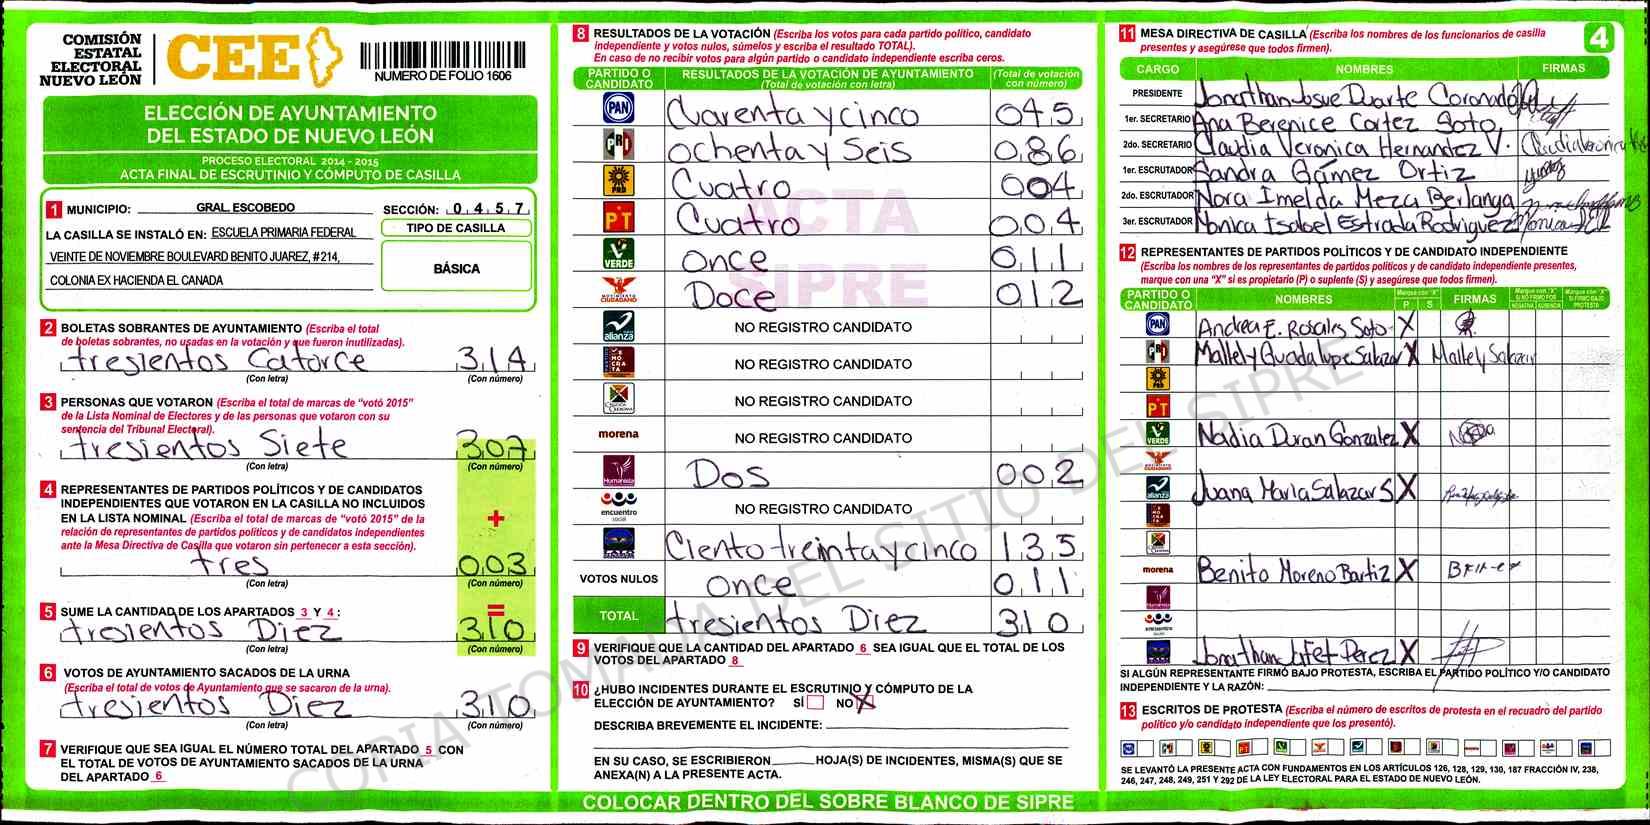 COMISIÓN
ESTATAL
ELECTORAL
NUEVO LEÓN
CEE
NUMERO DE FOLIO 1606
ELECCIÓN DE AYUNTAMIENTO
DEL ESTADO DE NUEVO LEÓN
PROCESO ELECTORAL 2014 - 2015
ACTA FINAL DE ESCRUTINIO Y CÓMPUTO DE CASILLA
1 MUNICIPIO: GRAL. ESCOBEDO SECCIÓN: 0 4 5 7
LA CASILLA SE INSTALÓ EN: ESCUELA PRIMARIA FEDERAL
VEINTE DE NOVIEMBRE BOULEVARD BENITO JUAREZ, #214,
COLONIA EX HACIENDA EL CANADA
TIPO DE CASILLA
BÁSICA
2 BOLETAS SOBRANTES DE AYUNTAMIENTO (Escriba el total
de boletas sobrantes, no usadas en la votación y que fueron inutilizadas).
tresientos Catorce 314
(Con letra) (Con número)
3 PERSONAS QUE VOTARON (Escriba el total de marcas de “votó 2015”
de la Lista Nominal de Electores y de las personas que votaron con su
sentencia del Tribunal Electoral).
tresientos Siete 307
(Con letra) (Con número)
4 REPRESENTANTES DE PARTIDOS POLÍTICOS Y DE CANDIDATOS
INDEPENDIENTES QUE VOTARON EN LA CASILLA NO INCLUIDOS
EN LA LISTA NOMINAL (Escriba el total de marcas de “votó 2015” de la
relación de representantes de partidos políticos y de candidatos independientes
ante la Mesa Directiva de Casilla que votaron sin pertenecer a esta sección).
+
tres 003
(Con letra) (Con número)
=
5 SUME LA CANTIDAD DE LOS APARTADOS 3 Y 4 :
tresientos Diez 310
(Con letra) (Con número)
6 VOTOS DE AYUNTAMIENTO SACADOS DE LA URNA
(Escriba el total de votos de Ayuntamiento que se sacaron de la urna).
tresientos Diez 310
(Con letra) (Con número)
7 VERIFIQUE QUE SEA IGUAL EL NÚMERO TOTAL DEL APARTADO 5 CON
EL TOTAL DE VOTOS DE AYUNTAMIENTO SACADOS DE LA URNA
DEL APARTADO 6
8 RESULTADOS DE LA VOTACIÓN (Escriba los votos para cada partido político, candidato
independiente y votos nulos, súmelos y escriba el resultado TOTAL).
En caso de no recibir votos para algún partido o candidato independiente escriba ceros.
PARTIDO O CANDIDATO RESULTADOS DE LA VOTACIÓN DE AYUNTAMIENTO (Total de votación con letra) (Total de votación con número)
PAN Cuarenta y cinco 045
PRI ochenta y seis 086
PRD Cuatro 004
PT Cuatro 004
VERDE once 011
MOVIMIENTO CIUDADANO Doce 012
alianza NO REGISTRO CANDIDATO
DEMOCRATA NO REGISTRO CANDIDATO
CRUZADA CIUDADANA NO REGISTRO CANDIDATO
morena NO REGISTRO CANDIDATO
Humanista Dos 002
encuentro social NO REGISTRO CANDIDATO
Ciento treinta y cinco 135
VOTOS NULOS once 011
TOTAL tresientos Diez 310
ACTA
SIPRE
9 VERIFIQUE QUE LA CANTIDAD DEL APARTADO 6 SEA IGUAL QUE EL TOTAL DE LOS
VOTOS DEL APARTADO 8
10 ¿HUBO INCIDENTES DURANTE EL ESCRUTINIO Y CÓMPUTO DE LA
ELECCIÓN DE AYUNTAMIENTO? SÍ NO X
DESCRIBA BREVEMENTE EL INCIDENTE:
EN SU CASO, SE ESCRIBIERON HOJA(S) DE INCIDENTES, MISMA(S) QUE SE
ANEXA(N) A LA PRESENTE ACTA.
COLOCAR DENTRO DEL SOBRE BLANCO DE SIPRE
11 MESA DIRECTIVA DE CASILLA (Escriba los nombres de los funcionarios de casilla
presentes y asegúrese que todos firmen).
4
CARGO NOMBRES FIRMAS
PRESIDENTE Jonathan Josue Duarte Coronado
1er. SECRETARIO Ana Berenice Cortez Soto
2do. SECRETARIO Claudia Veronica Hernandez V.
1er. ESCRUTADOR Sandra Gámez Ortiz
2do. ESCRUTADOR Nora Imelda Meza Berlanga
3er. ESCRUTADOR Monica Isabel Estrada Rodriguez
12 REPRESENTANTES DE PARTIDOS POLÍTICOS Y DE CANDIDATO INDEPENDIENTE
(Escriba los nombres de los representantes de partidos políticos y de candidato independiente presentes,
marque con una “X” si es propietario (P) o suplente (S) y asegúrese que todos firmen).
PARTIDO O CANDIDATO NOMBRES Marque con "X" P S FIRMAS Marque con "X" SI NO FIRMÓ POR NEGATIVA AUSENCIA Marque con "X" SI FIRMÓ BAJO PROTESTA
PAN Andrea E. Rosales Soto X
PRI Mallely Guadalupe Salazar X Mallely Salazar
PRD
PT
VERDE Nadia Duran Gonzalez X
MOVIMIENTO CIUDADANO
alianza Juana Maria Salazar S X
morena Benito Moreno Bartiz X
encuentro social
Jonathan Jafet Perez X
SI ALGÚN REPRESENTANTE FIRMÓ BAJO PROTESTA, ESCRIBA EL PARTIDO POLÍTICO Y/O CANDIDATO
INDEPENDIENTE Y LA RAZÓN:
13 ESCRITOS DE PROTESTA (Escriba el número de escritos de protesta en el recuadro del partido
político y/o candidato independiente que los presentó).
SE LEVANTÓ LA PRESENTE ACTA CON FUNDAMENTOS EN LOS ARTÍCULOS 126, 128, 129, 130, 187 FRACCIÓN IV, 238,
246, 247, 248, 249, 251 Y 292 DE LA LEY ELECTORAL PARA EL ESTADO DE NUEVO LEÓN.
COPIA TOMADA DEL SITIO DEL SIPRE